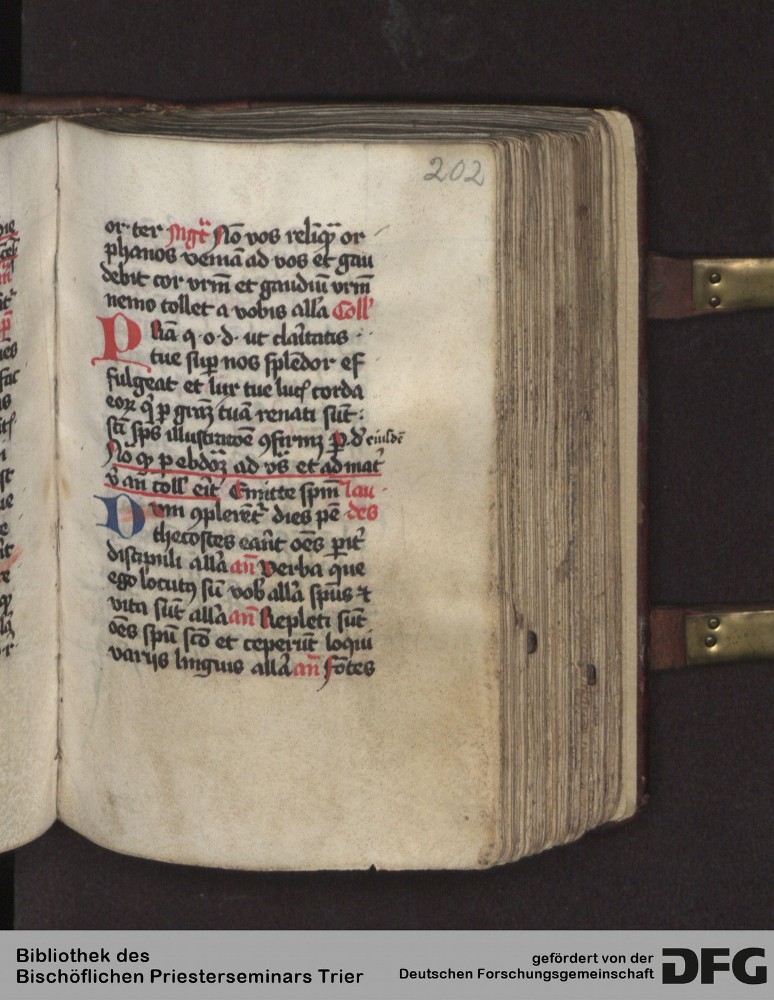 202
or·ter Mgt̄ No vos relīqͣ or
phanos veniā ad vos et gau
debit cor vrm̄ et gaudiū vrm̄
nemo tollet a vobis all'a Coll'
P hā q·o·d· ut claritatis
tue sup nos splēdor ef
fulgeat et lux tue luc' corda
eoꝝ q' p gr̄az tuā renati sūt:
sc̄i sp̄s illustratōe ꝯfirmꝫ p·d' eiusdē
No qͥ p ebdōꝫ ad vs̄ et ad mat'
v̄ an̄ coll' eīt Emitte spm̄ lau
D um ꝯplerent' dies pē des
thecostes erāt om̄s pit'
discipuli all'a an̄ Verba que
ego locutꝰ sū vob' all'a spūs ⁊t
vita sūt all'a an̄ Repleti sūt
om̄s spū sc̄o et ceperūt loqui
varijs linguis all'a an̄ Fōtes
Bibliothek des
Bischöflichen Priesterseminars Trier
gefördert von der
Deutschen Forschungsgemeinschaft
DFG